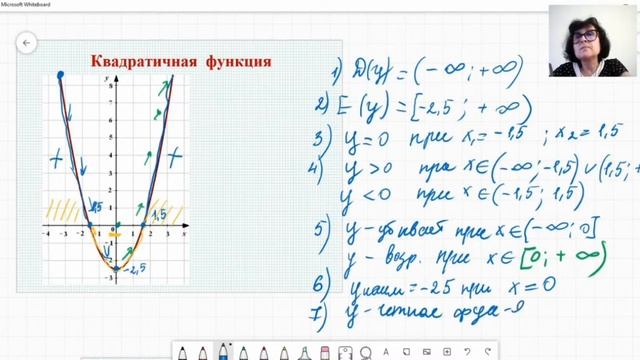 Microsoft Whiteboard
Квадратичная функция
y
8
7
6
5
4
3
2
1
+ +
-1,5 1,5
-4 -3 -2 -1 0 1 2 3 x
-2,5
-3
1) D(y) = (-∞; +∞)
2) E(y) = [-2,5; +∞)
3) y=0 при x₁=-1,5; x₂=1,5
4) y>0 при x∈(-∞;-1,5)∪(1,5;+
y<0 при x∈(-1,5; 1,5)
5) y-убывает при x∈(-∞;0]
y-возр. при x∈[0;+∞)
6) yнаим=-2,5 при x=0
7) y-четная функ-я